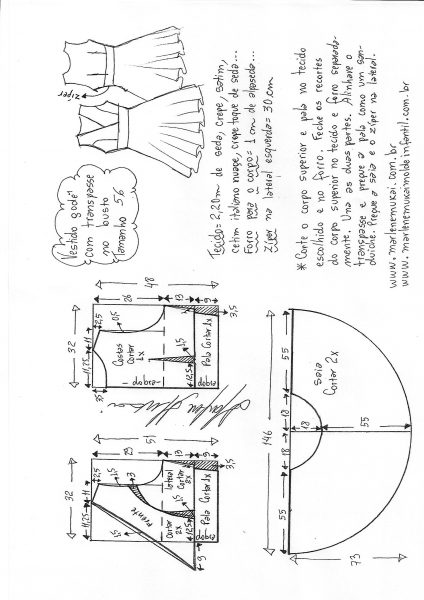 zíper
Vestido godê
com transpasse
no busto
tamanho 56
Tecido = 2,20m de seda, crepe, cetim,
cetim italiano nuage, crepe toque de seda...
Forro para o corpo = 1 cm de dopseda...
Zíper na lateral esquerda = 30 cm
* Corte o corpo superior e pala no tecido
escolhido e no forro. Feche os recortes
do corpo superior no tecido e forro separada-
mente. Una as duas partes. Alinhave o
transpasse e pregue a pala como um san-
duiche. Pregue a saia e o zíper na lateral.
www.marlenemukai.com.br
www.marlenemukaimoldeinfantil.com.br
51
29
13
9
32
11,25
11
2,5
1,5
3
1,5
Frente
1,5
Cortar
2x
lateral
Cortar
2x
12,5
1,5
Pala Cortar 1x
dobra
9
3,5
48
26
13
9
32
11,25
11
2,5
3,5
0,5
Costas
Cortar
1x
dobra
12,5
1,5
Pala Cortar 1x
dobra
3,5
146
55
18
18
55
18
55
73
Saia
Cortar 2x